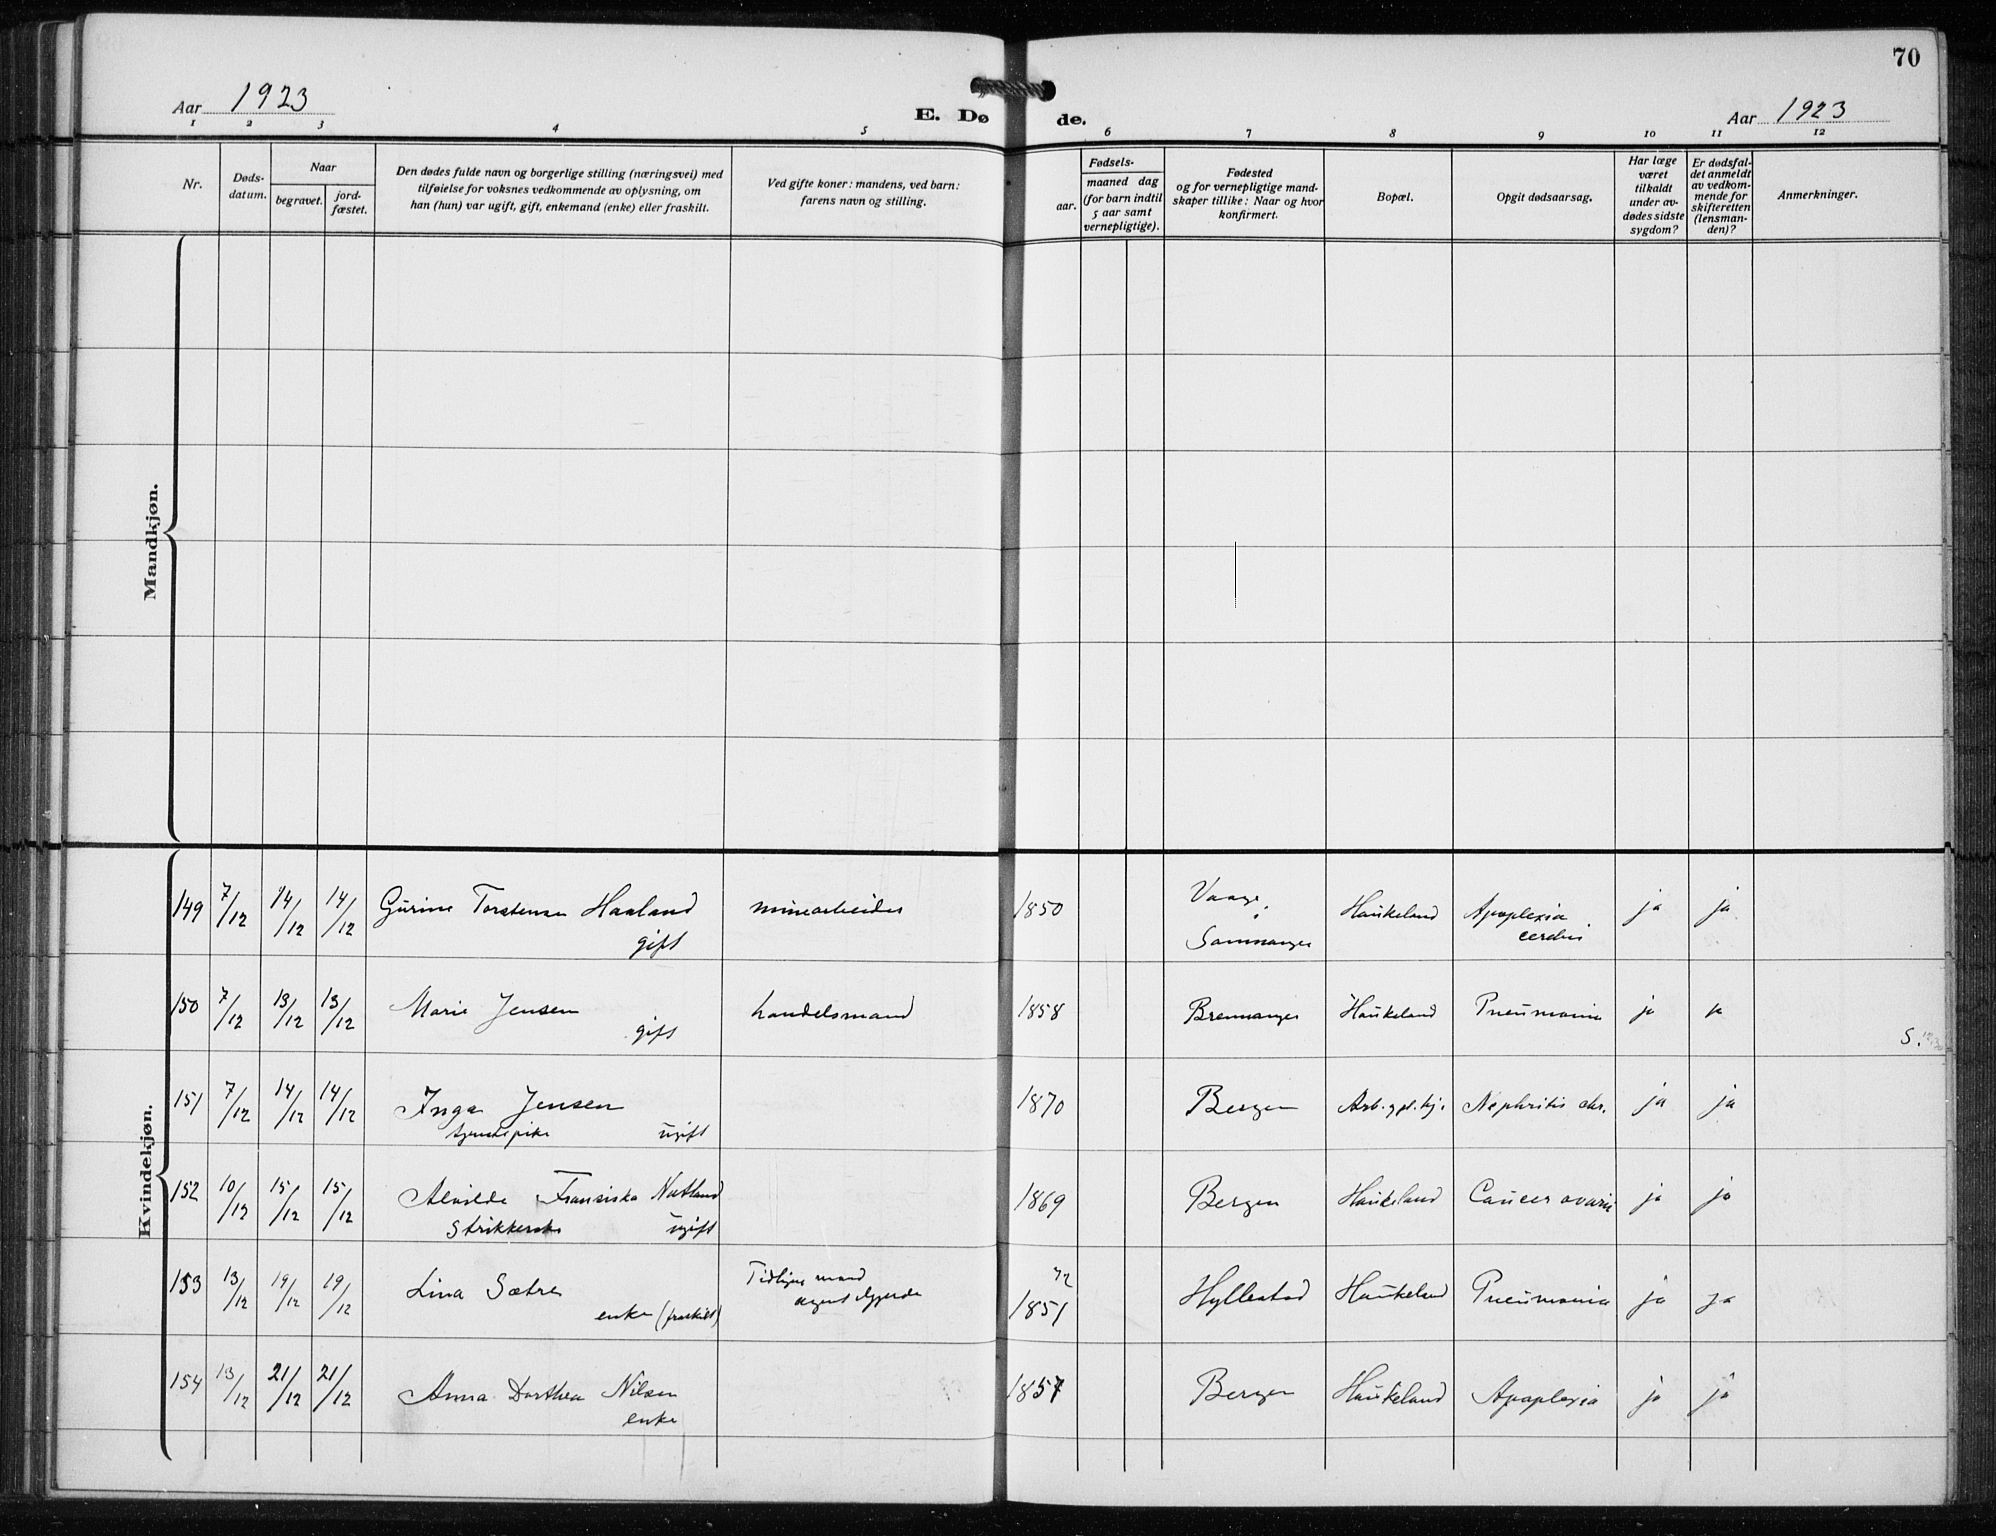 70
Aar 1923
E. Døde.
Aar 1923
1 2 3 4 5 6 7 8 9 10 11 12
Nr.
Døds-
datum.
Naar
begravet.
jord-
fæstet.
Den dødes fulde navn og borgerlige stilling (næringsvei) med
tilføielse for voksnes vedkommende av oplysning, om
han (hun) var ugift, gift, enkemand (enke) eller fraskilt.
Ved gifte koner: mandens, ved barn:
farens navn og stilling.
Fødsels-
aar.
maaned dag
(for barn indtil
5 aar samt
vernepligtige).
Fødested
og for vernepligtige mand-
skaper tillike: Naar og hvor
konfirmert.
Bopæl.
Opgit dødsaarsag.
Har læge
været
tilkaldt
under av-
dødes sidste
sygdom?
Er dødsfal-
det anmeldt
av vedkom-
mende for
skifteretten
(lensman-
den)?
Anmerkninger.
Mandkjøn.
Kvindekjøn.
149 7/12 14/12 14/12 Gurine Torstensen Haaland minearbeider 1850 Vaage, Haukeland Apoplexia ja ja
gift Samnanger
150 7/12 13/12 13/12 Marie Jensen handelsmand 1858 Bremanger Haukeland Pneumonia ja ja
gift S.
151 7/12 14/12 14/12 Inga Jensen 1870 Bergen Arb. & pl. hj. Nephritis chr. ja ja
tjenestepike ugift
152 10/12 15/12 15/12 Alvilde Fransiska Natland 1869 Bergen Haukeland Cancer ovarii ja ja
Strikkerske ugift
153 13/12 19/12 19/12 Lina Sætre Tidligere mand 1851 Hyllestad Haukeland Pneumonia ja ja
enke (fraskilt) agent
154 13/12 21/12 21/12 Anna Dorthea Nilsen 1857 Bergen Haukeland Apoplexia ja ja
enke